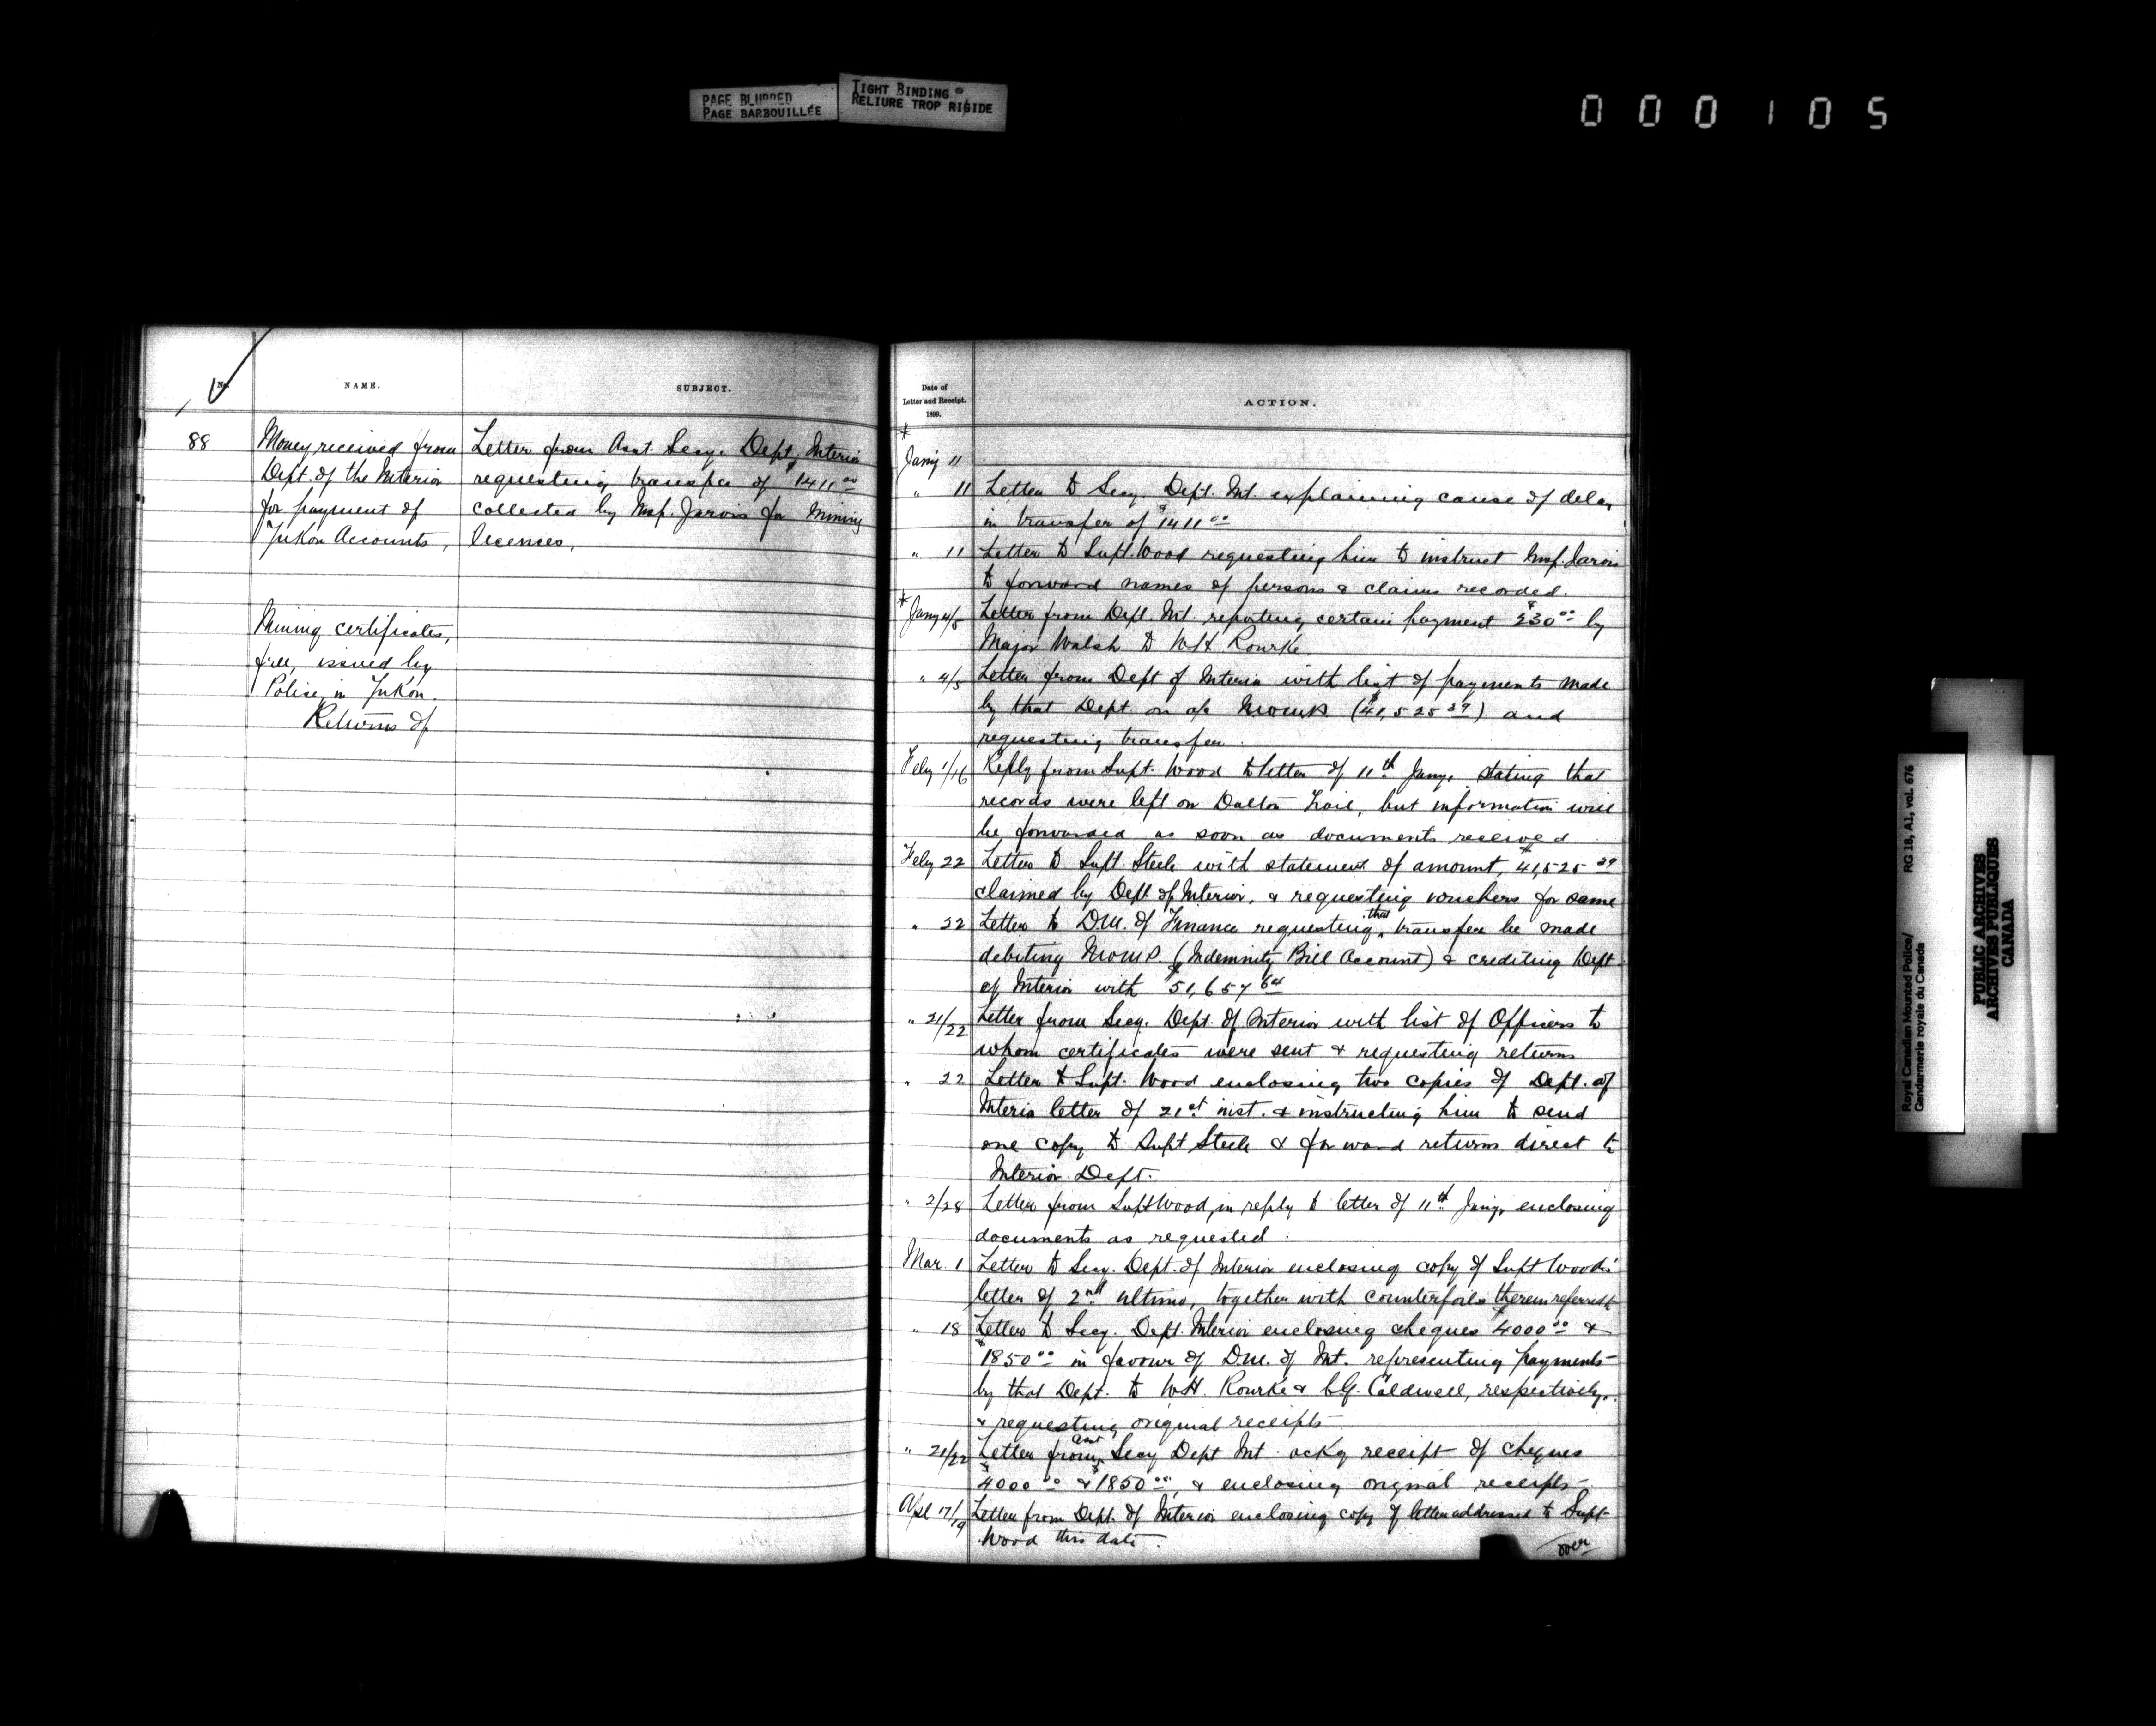 PAGE BLURRED
PAGE BARBOUILLÉE
TIGHT BINDING
RELIURE TROP RIGIDE
000105
No.
NAME.
SUBJECT.
88
Money received from
Dept. of the Interior
for payment of
Yukon Accounts,
Mining certificates,
free, issued by
Police in Yukon.
Returns of
Letter from Asst. Secy. Dept, Interior
requesting transfer of $1411 00
collected by Insp. Jarvis for Mining
licenses,
Date of
Letter and Receipt.
1899.
ACTION.
Jany 11
" 11 Letter to Secy. Dept. Int. explaining cause of delay
in transfer of $1411 00
" 11 Letter to Supt. Wood requesting him to instruct Insp. Jarvis
to forward names of persons & claims recorded.
* Jany 4/5 Letter from Dept. Int. reporting certain payment $230 00 by
Major Walsh to W H Rourke.
" 4/5 Letter from Dept of Interior with list of payments made
by that Dept. on a/c NWMP. ($41,525 39) and
requesting transfer.
Feby 1/16 Reply from Supt. Wood to letter of 11th Jany, stating that
records were left on Dalton Trail, but information will
be forwarded as soon as documents received
Feby 22 Letter to Supt. Steele with statement of amount, $41,525 39
claimed by Dept of Interior, & requesting vouchers for same
" 22 Letter to D.M. of Finance requesting that transfer be made
debiting NWMP. (Indemnity Bill Account) & crediting Dept
of Interior with $51,657 64
" 21/22 Letter from Secy. Dept. of Interior with list of Officers to
whom certificates were sent & requesting returns
" 22 Letter to Supt. Wood enclosing two copies of Dept. of
Interior letter of 21st inst. & instructing him to send
one copy to Supt Steele & forward returns direct to
Interior Dept.
" 2/28 Letter from Supt Wood, in reply to letter of 11th Jany, enclosing
documents as requested.
Mar. 1 Letter to Secy. Dept. of Interior enclosing copy of Supt Wood's
letter of 2nd ultimo, together with counterfoils therein referred to
" 18 Letter to Secy. Dept. Interior enclosing cheques $4000 00 &
$1850 00 in favour of D.M. of Int. representing payments
by that Dept. to W.H. Rourke & Caldwell, respectively,
& requesting original receipts
" 21/22 Letter from Asst Secy Dept Int. ackg receipt of cheques
$4000 00 & $1850 00, & enclosing original receipts
Apl 17/19 Letter from Dept. of Interior enclosing copy of letter addressed to Supt
Wood this date.
over
Royal Canadian Mounted Police/
Gendarmerie royale du Canada
RG 18, A1, vol. 676
PUBLIC ARCHIVES
ARCHIVES PUBLIQUES
CANADA